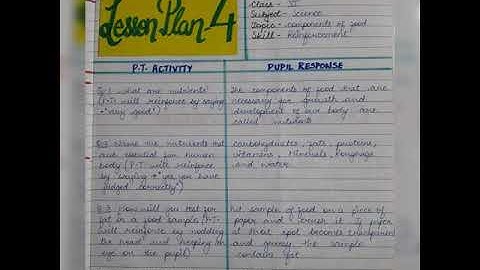 Lesson Plan-4
Class - VI
Subject - Science
Topic - components of food
Skill - Reinforcement
P.T. ACTIVITY
PUPIL RESPONSE
Q.1 what are nutrients?
(P.T. will reinforce by saying
"very good")
The components of food that are
necessary for growth and
development of our body are
called nutrients
Q.2 Name the nutrients that
are essential for human
body (P.T. will reinforce
by saying "yes you have
judged correctly")
carbohydrates, fats, proteins,
vitamins, Minerals, Roughage
and water
Q.3 How will you test for
fat in a food sample (P.T.
will reinforce by nodding
the head and keeping an
eye on the pupil)
Put sample of food on a piece of
paper and crush it if paper
at that spot becomes transparent
and greasy the sample
contains fat